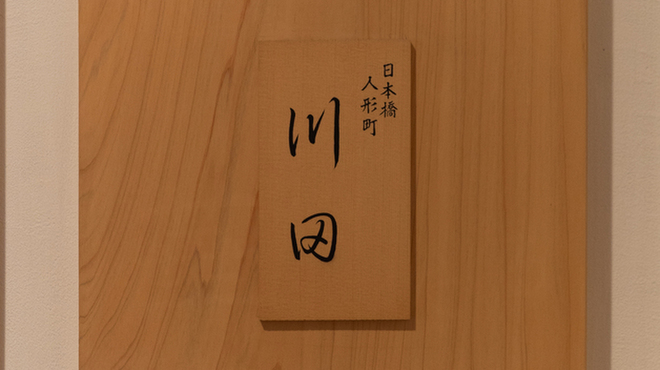 日本橋
人形町
川田